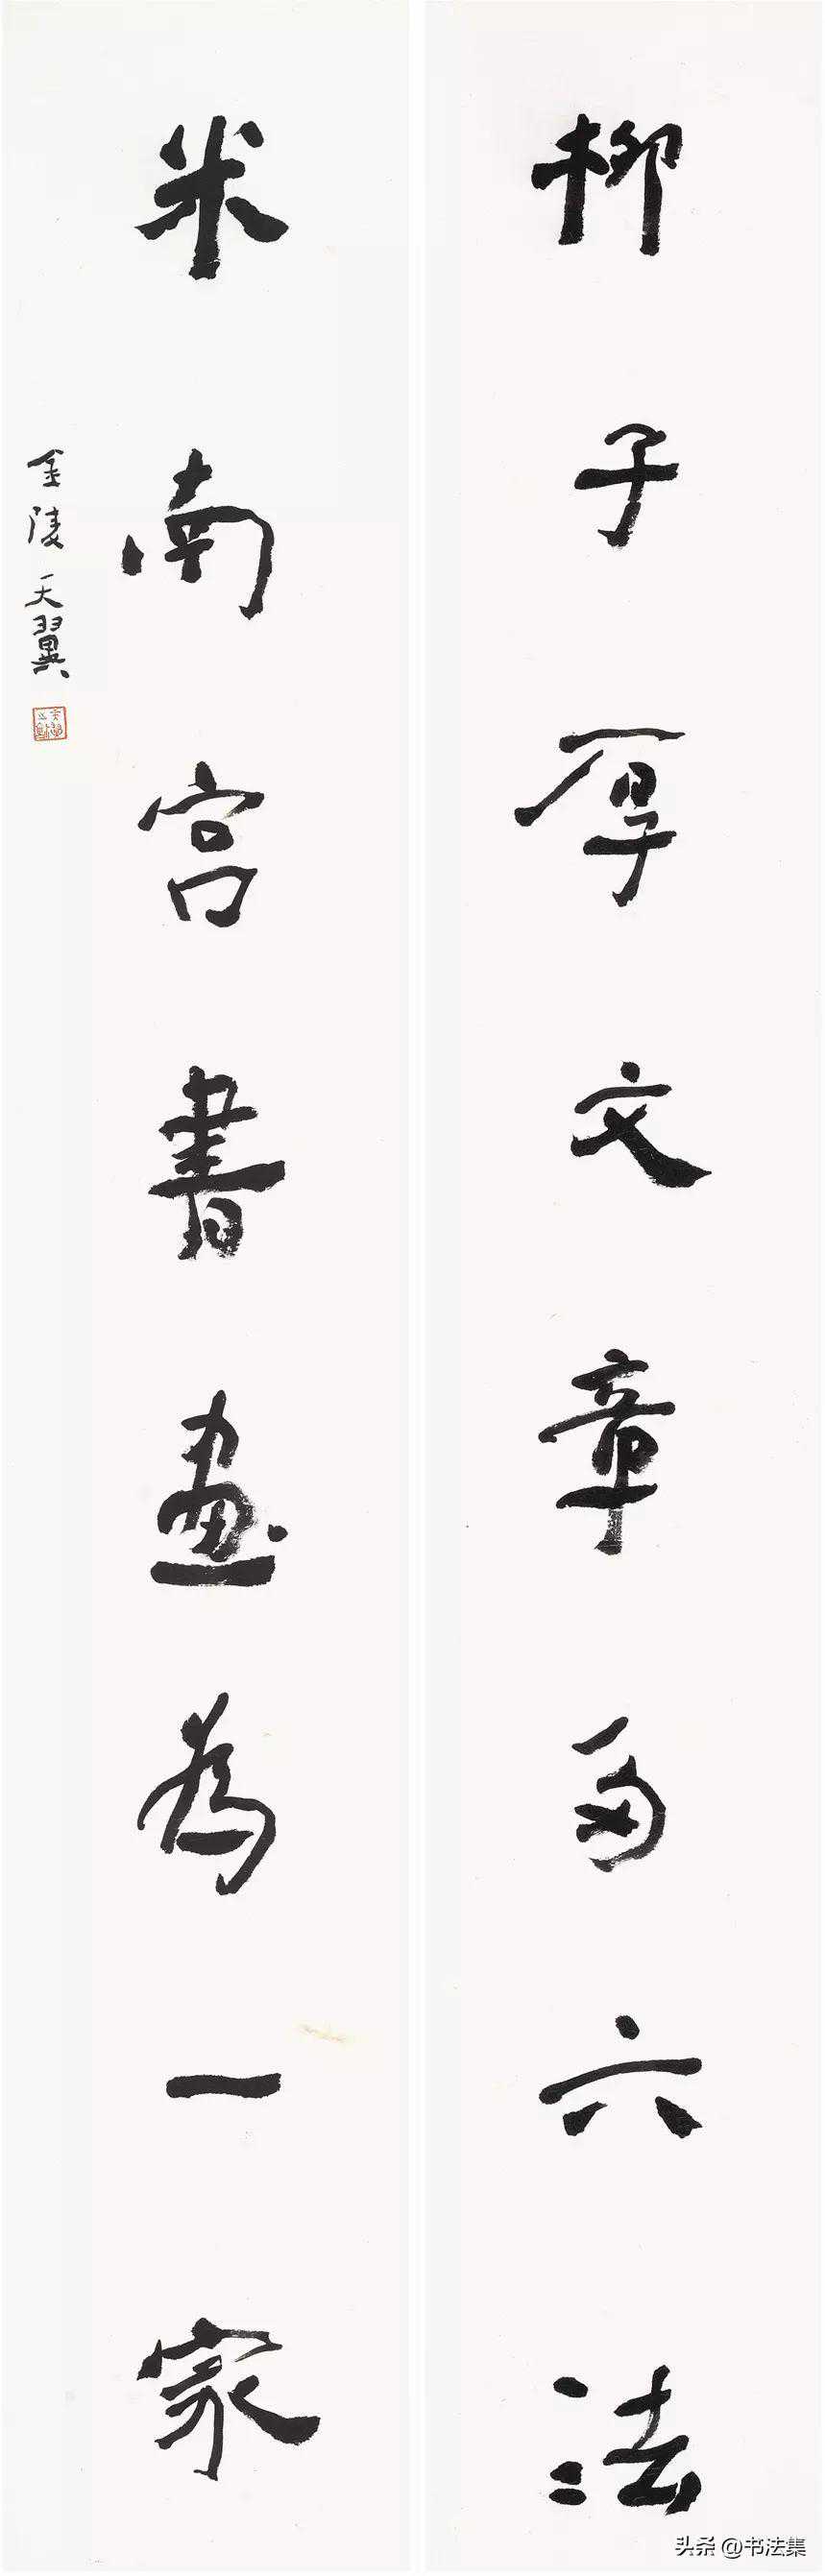 柳子厚文章六法
米南宫書畫為一家
金陵天翼
头条 @书法集